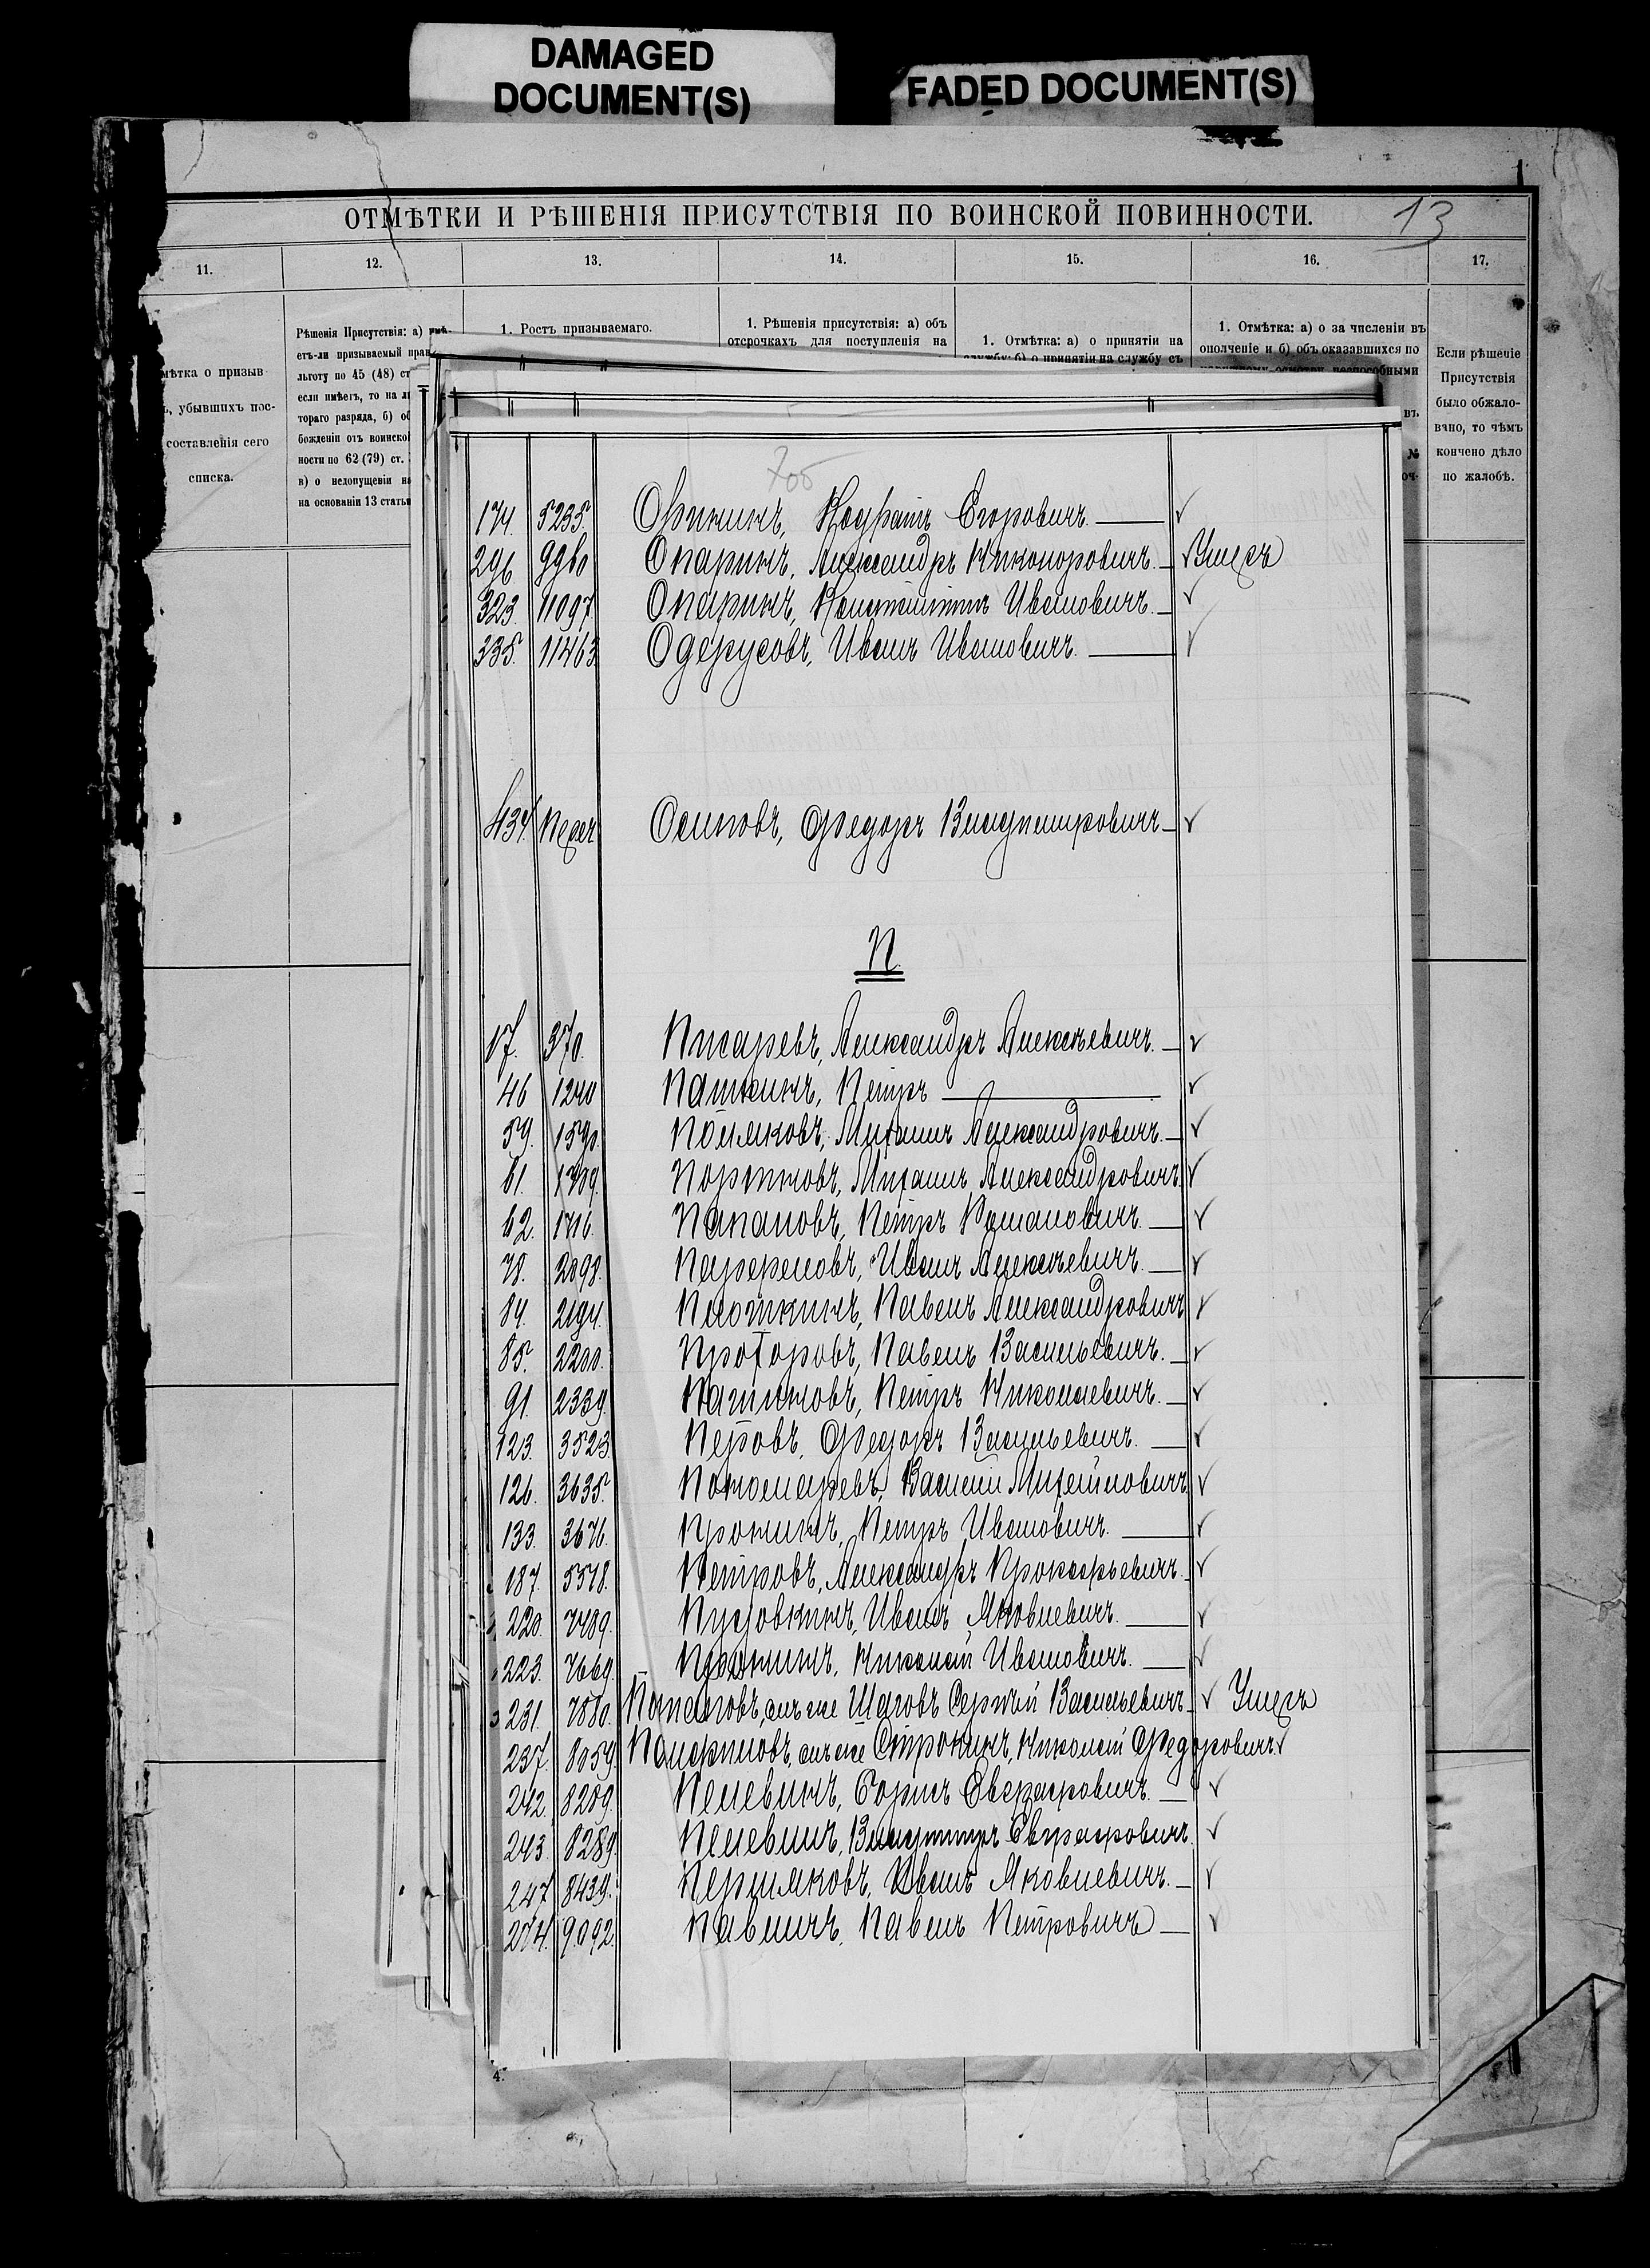 DAMAGED
DOCUMENT(S)
FADED DOCUMENT(S)
ОТМѢТКИ И РѢШЕНІЯ ПРИСУТСТВІЯ ПО ВОИНСКОЙ ПОВИННОСТИ.
13
11. 12. 13. 14. 15. 16. 17.
мѣтка о призыв
ъ, убывшихъ пос-
составленія сего
списка.
Рѣшенія Присутствія: а) имѣ-
етъ-ли призываемый прав
льготу по 45 (48) ст
если имѣетъ, то на л
тораго разряда, б) об
божденіи отъ воинской
ности по 62 (79) ст.
в) о недопущеніи н
на основаніи 13 статьи
1. Ростъ призываемаго.
1. Рѣшенія присутствія: а) объ
отсрочкахъ для поступленія на
1. Отмѣтка: а) о принятіи на
службу; б) о принятіи на службу съ
1. Отмѣтка: а) о за численіи въ
ополченіе и б) объ оказавшихся по
наружному осмотру неспособными
въ
№
оч-
Если рѣшеніе
Присутствія
было обжало-
вано, то чѣмъ
кончено дѣло
по жалобѣ.
174. 5235. Егоровичъ. ✓
296 9960 Опаринъ, Александръ Никоноровичъ. ✓ Умеръ
323. 11097. Опаринъ, Константинъ Ивановичъ. ✓
335. 11463 Одерусовъ, Иванъ Ивановичъ. ✓
434 Осиповъ, Федоръ Владимировичъ ✓
П.
17. 370. Писаревъ, Александръ Алексѣевичъ. ✓
46 1240 Пашкинъ, Петръ ✓
59. 1590. Поляковъ, Михаилъ Александровичъ. ✓
61. 1709. Портновъ, Михаилъ Александровичъ ✓
62. 1716. Папановъ, Петръ Романовичъ. ✓
78. 2098. Иванъ Алексѣевичъ. ✓
84. 2194. Плоткинъ, Павелъ Александровичъ ✓
85. 2200. Прохоровъ, Павелъ Васильевичъ. ✓
91. 2339. Петръ Николаевичъ. ✓
123. 3523 Перовъ, Федоръ Васильевичъ. ✓
126. 3635. Пономаревъ, Василій Михайловичъ ✓
133. 3676. Пронинъ, Петръ Ивановичъ. ✓
187. 5578. Петровъ, Александръ Прокофьевичъ. ✓
220. 7489. Пуговкинъ, Иванъ Яковлевичъ. ✓
223. 7669. Пронинъ, Николай Ивановичъ. ✓
231. 7880. онъ же Шаговъ Сергѣй Васильевичъ. ✓ Умеръ
237. 8059. Панфиловъ, онъ же Строкинъ, Николай Федоровичъ. ✓
242. 8209. Пелевинъ, Борисъ Евграфовичъ. ✓
243. 8289. Пелевинъ, Владимиръ Евграфовичъ. ✓
247 8439. Першяковъ, Иванъ Яковлевичъ. ✓
274. 9092. Павлинъ, Павелъ Петровичъ ✓
4.